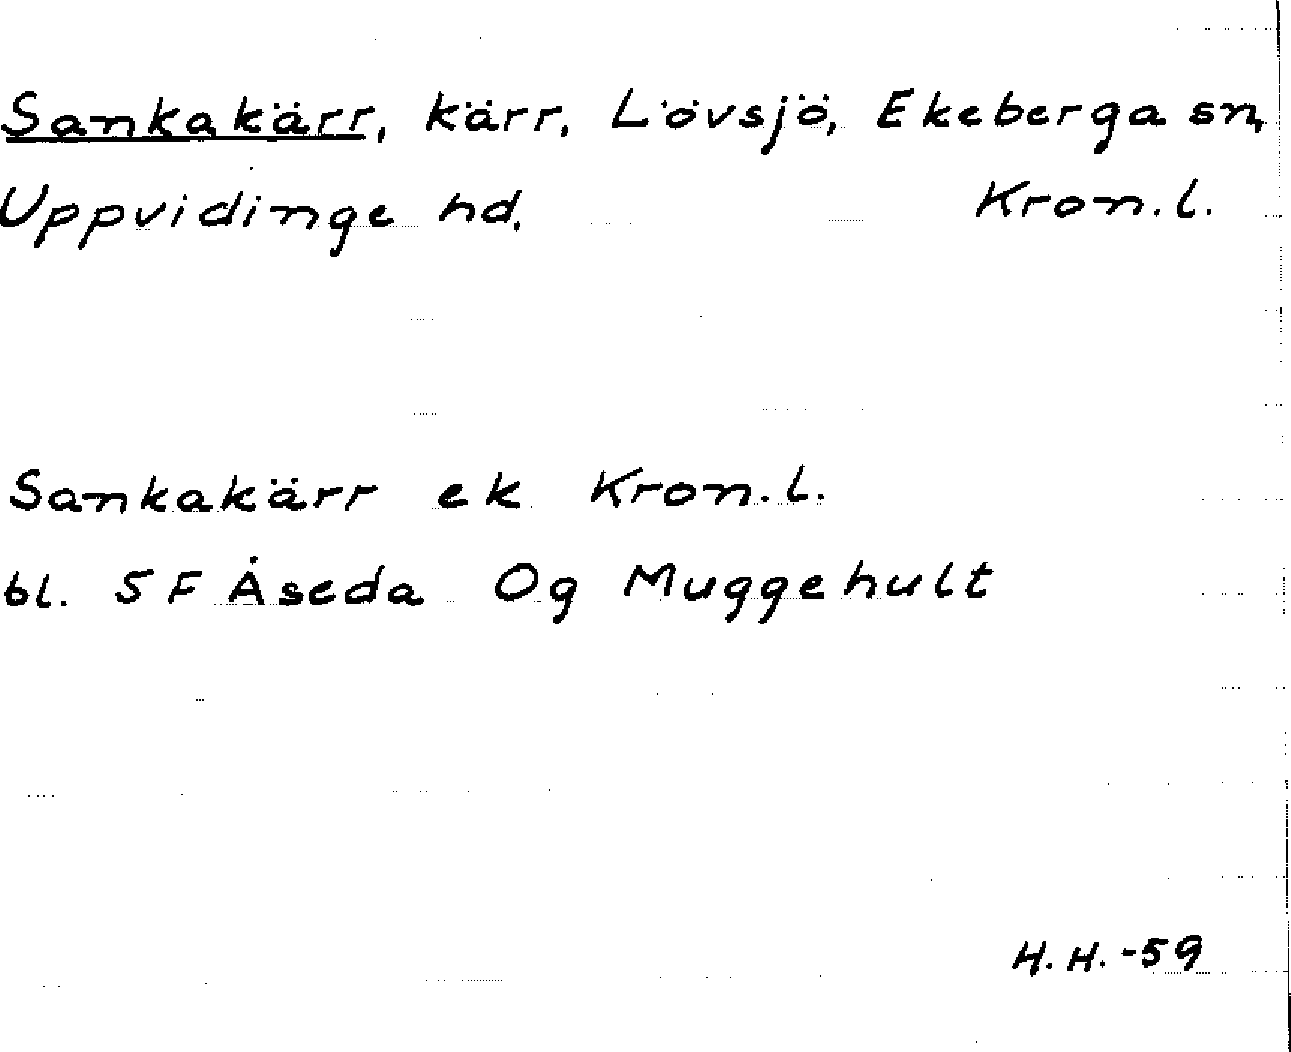 Sankakärr, kärr, Lövsjö, Ekeberga sn,
Uppvidinge hd. Kron.l.
Sankakärr ek Kron.l.
bl. 5F Åseda Og Muggehult
H.H.-59